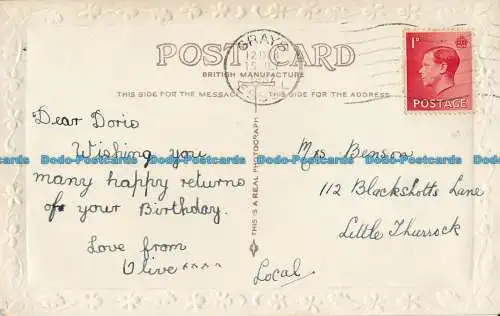 POST CARD
BRITISH MANUFACTURE
THIS SIDE FOR THE MESSAGE
THIS SIDE FOR THE ADDRESS
GRAYS
1D
POSTAGE
THIS IS A REAL PHOTOGRAPH
Dear Doris
Wishing you
many happy returns
of your Birthday.
Love from
Olive xxxx
Mrs Benson
112 Blackshotts Lane
Little Thurrock
Local
Dodo-Postcards Dodo-Postcards Dodo-Postcards Dodo-Postcards Dodo-Postcards Dodo-Postcards